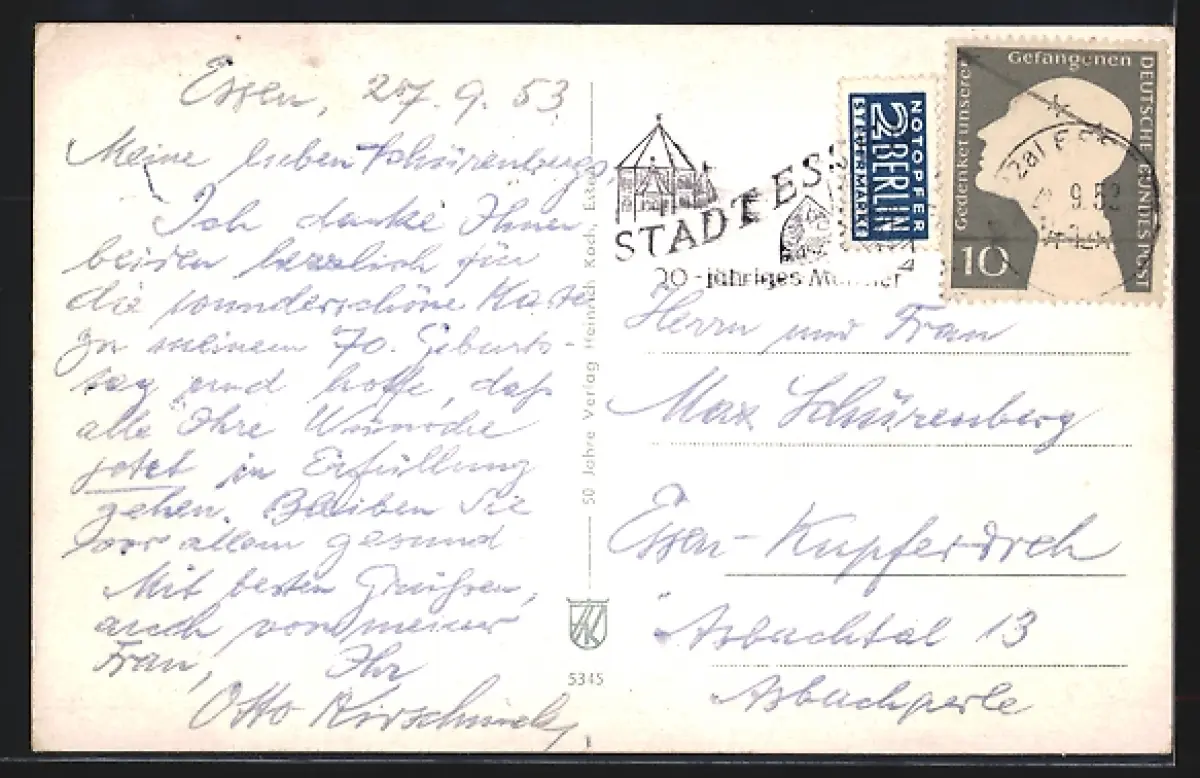 Essen, 27. 9. 53
Meine lieben Schürenbergs,
Ich danke Ihnen
beiden herzlich für
die wunderschöne Karte
zu meinem 70. Geburts-
tag und hoffe, daß
alle Ihre Wünsche
jetzt in Erfüllung
gehen. Bleiben Sie
vor allem gesund
Mit besten Grüßen,
auch von meiner
Frau, Ihr
Otto
50 Jahre Verlag Heinrich Koch, Essen
5345
STADT ESS
-jähriges Münster
NOTOPFER
2 BERLIN
STEUERMARKE
Gedenket unserer
Gefangenen
DEUTSCHE BUNDESPOST
10
9.53
Herrn und Frau
Max Schürenberg
Essen-Kupferdreh
Asbachtal 13
Asbachperle